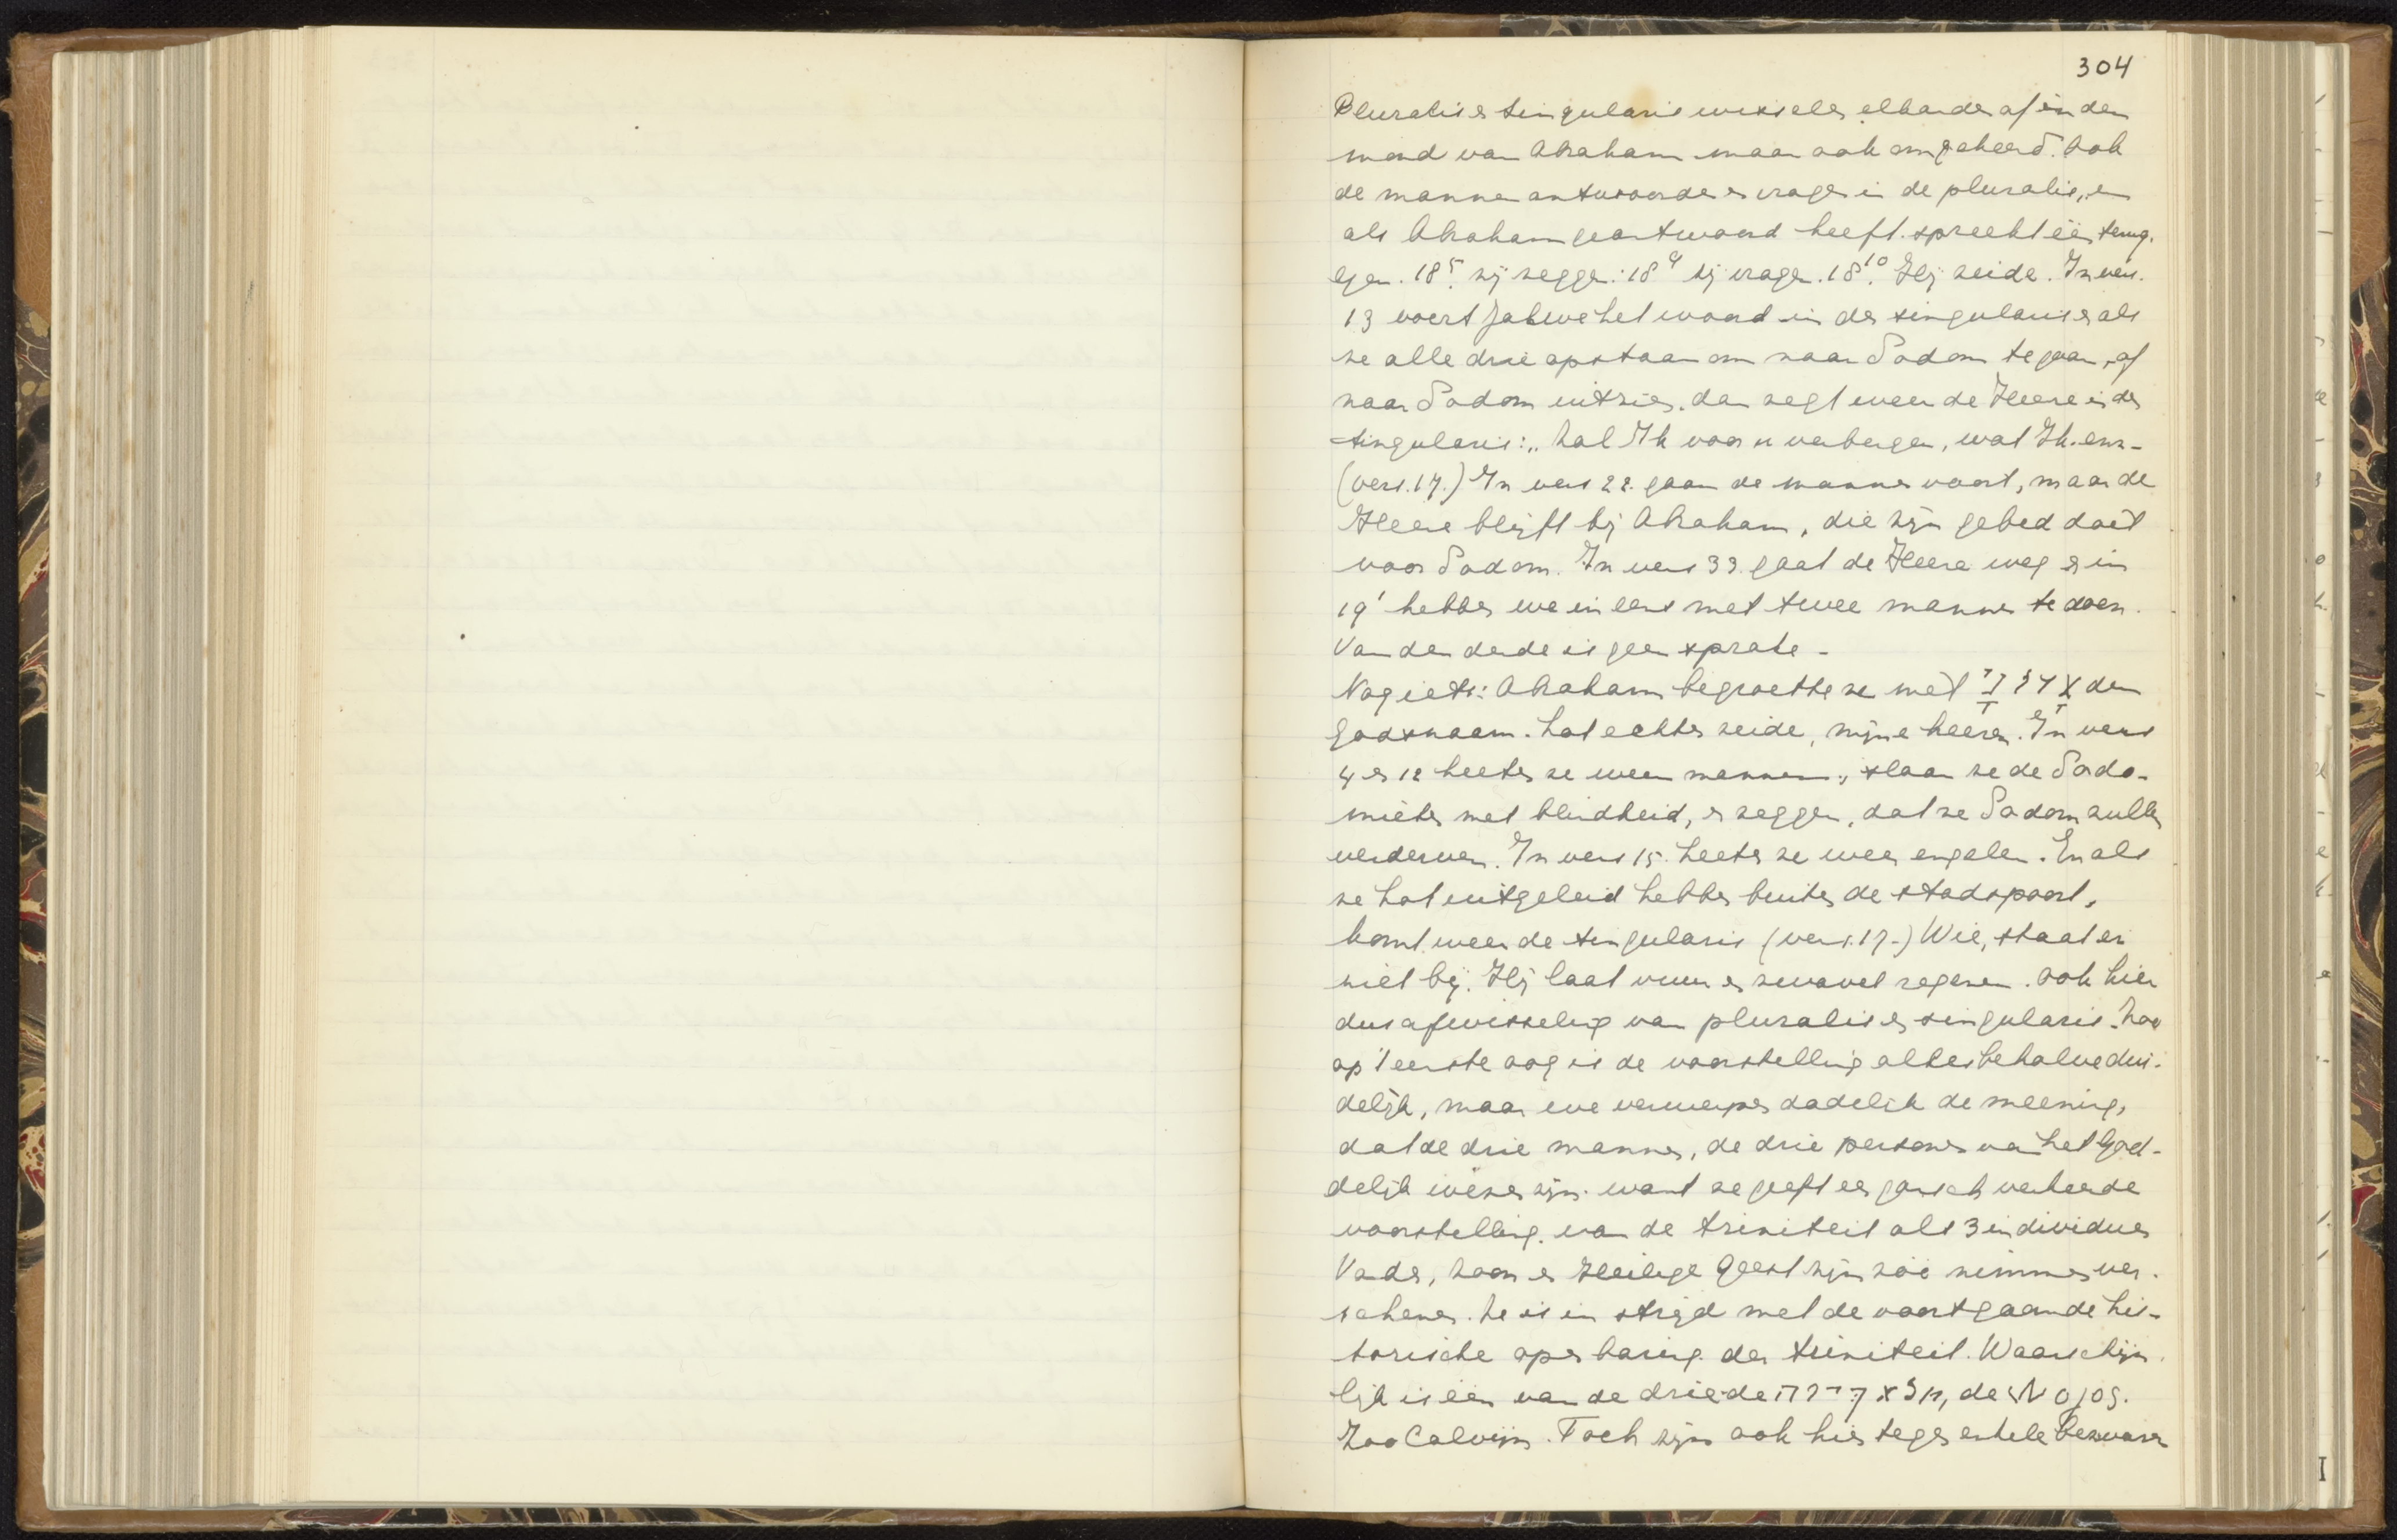 304
Pluralis e singularis wissele elkander af in den
mond van Abraham maar ook omgekeerd. Ook
de manne antwoorde e vrage in de pluralis, en
als Abraham geantwoord heeft. spreekt één terug.
Gen. 18⁵. zij zegge: 18⁹ zij vrage. 18¹⁰. Hij zeide. In vers.
13 voert Jahwe het woord in de singularis e als
ze alle drie opstaan om naar Sodom te gaan, of
naar Sodom uitzie. dan zegt weer de Heere in de
singularis: „Zal Ik voor u verbergen, wat Ik. enz-
(vers. 17.) In vers 22. gaan de manne voort, maar de
Heere blijft bij Abraham, die zijn gebed doet
voor Sodom. In vers 33. gaat de Heere weg e in
19¹ hebbe we ineens met twee manne te doen.
Van den derde is geen sprake -
Nog iets: Abraham begroette ze met אֲדֹנָי den
Godsnaam. Lot echter zeide, mijne heeren. In vers
4 e 12 heete ze weer mannen, slaan ze de Sodo-
miete met blindheid, e zeggen, dat ze Sodom zulle
verderven. In vers 15. heete ze weer engelen. En als
ze Lot uitgeleid hebbe buite de stadspoort,
komt weer de singularis (vers. 17-) Wie, staat er
niet bij. Hij laat vuur e zwavel regenen. Ook hier
dus afwisseling van pluralis e singularis. Zoo
op 't eerste oog is de voorstelling allesbehalve dui-
delijk, maar we verwerpe dadelijk de meening,
dat de drie manne, de drie persone van het God-
delijk weze zijn. want ze geeft ee gansch verkeerde
voorstelling. van de triniteit als 3 individue
Vader, Zoon e Heilige Geest zijn zóó nimmer ver-
schene. Ze is in strijd met de voortgaande his-
torische openbaring. der triniteit. Waarschijn-
lijk is één van de drie de מלאך יהוה, de Λογος.
Zoo Calvijn. Toch zijn ook hier tege enkele bezware